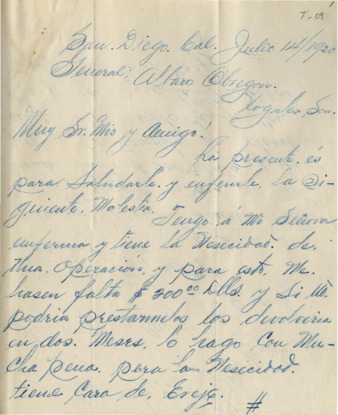 T-19
San. Diego. Cal. Julio 14/1920
General. Alvaro Obregon.
Nogales Son.
Muy Sr. Mio y Amigo!
La presente. es
para Saludarle. y enferirle. la Si-
giuente. Molestia. Tengo á Mi Señora
enferma y tiene la Nesecidad. de.
Una. Operación. y para esto. Me.
hasen falta $ 200.00 Dlls. y Si, Ud.
podria prestarmelos los devolviria
en dos. Meses. lo hago Con Mu-
cha pena. pero la Nesecidad.
tiene Cara de. Ereje. #